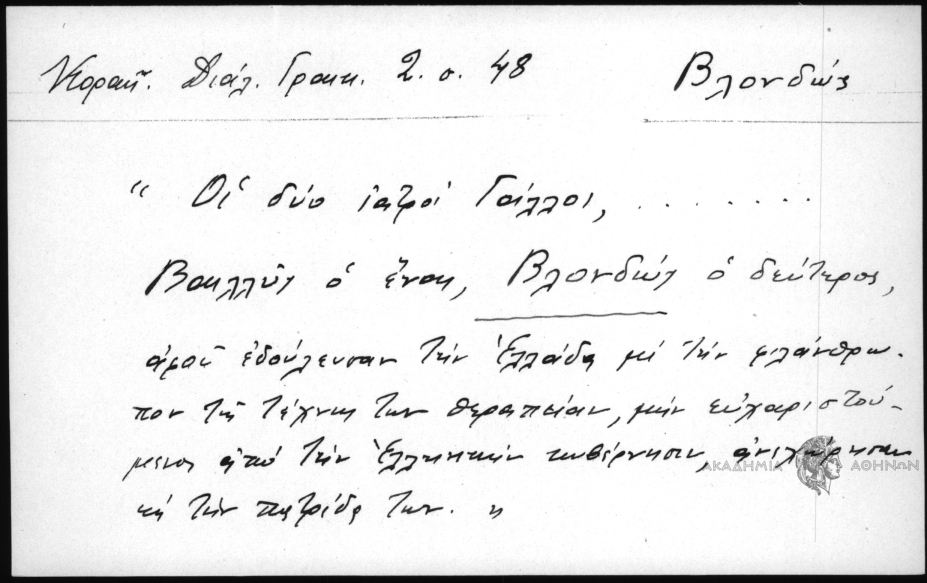 Κοραῆ. Διάλ. Γραικ. 2. σ. 48 Βλονδώς
“ Οἱ δύο ἰατροί Γάλλοι, . . . . . . . .
Βαιλλὺς ὁ ἕνας, Βλονδώς ὁ δεύτερος,
ἀφοῦ ἐδούλευσαν τὴν Ἑλλάδα μὲ τὴν φιλάνθρω-
πον τῆς τέχνης των θεραπείαν, μὴν εὐχαριστού-
μενοι ἀπό τὴν Ἑλληνικὴν κυβέρνησιν, ἀνεχώρησαν
τὴν πατρίδα των. ”
ΑΚΑΔΗΜΙΑ ΑΘΗΝΩΝ